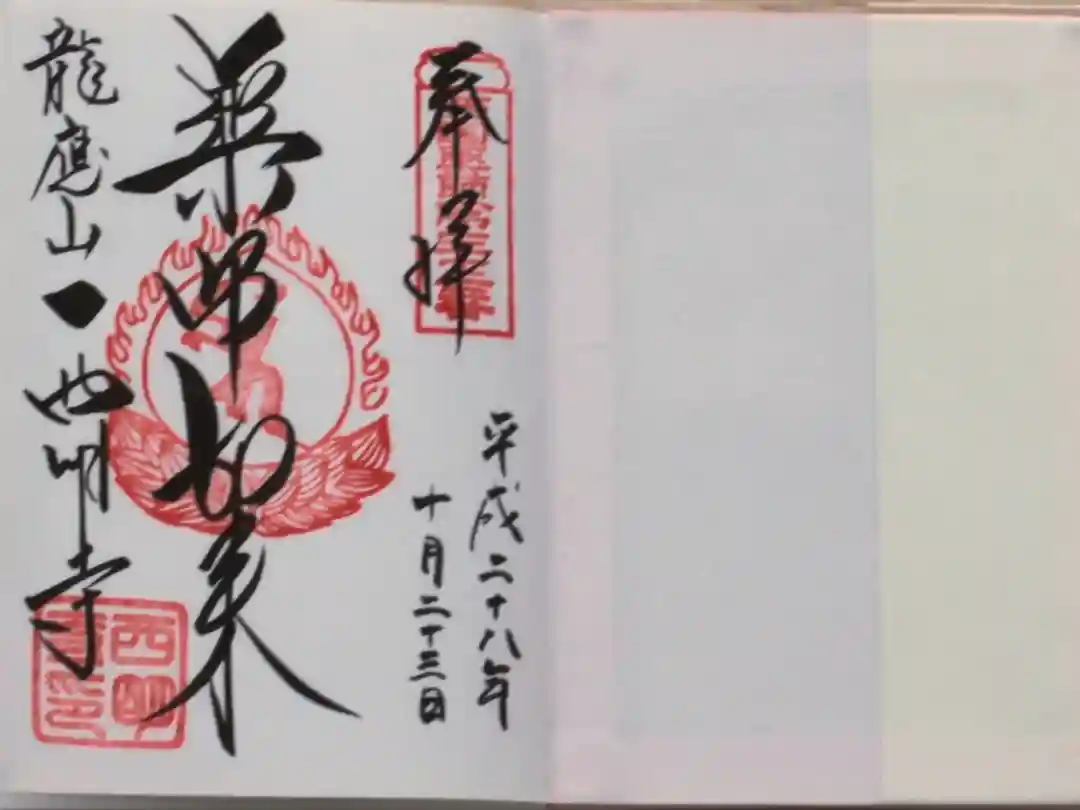 奉拝
平成二十八年
十月二十三日
薬師如来
龍應山 西明寺
西明寺印